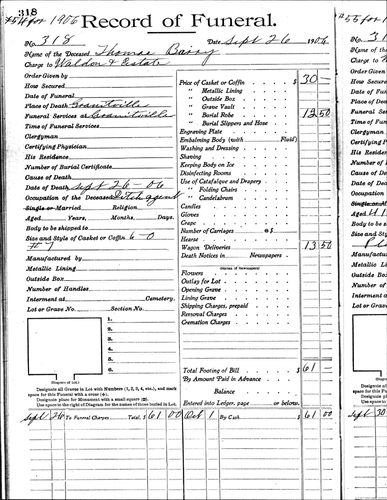 318
for 1906
Record of Funeral.
No. 318 Date Sept 26 1906
Name of the Deceased Thomas Barry
Charge to Waldon & Estate
Order Given by
How Secured
Date of Funeral
Place of Death Graniteville
Funeral Services at Graniteville
Time of Funeral Services
Clergyman
Certifying Physician
His Residence
Number of Burial Certificate
Cause of Death
Date of Death Sept 26 - 06
Occupation of the Deceased
Single or Married Religion
Aged Years, Months, Days.
Body to be shipped to
Size and Style of Casket or Coffin 6-0
#7
Manufactured by
Metallic Lining
Outside Box
Number of Handles
Interment at Cemetery,
Lot or Grave No. Section No.
1.
2.
3.
4.
5.
6.
(Diagram of Lot.)
Designate all Graves in Lot with Numbers (1, 2, 3, 4, etc.), and mark
space for this Funeral with a cross (+).
Designate place for Monument with a small square (□).
Use space to right of Diagram for the names of those buried in Lot.
Price of Casket or Coffin $ 30 —
" Metallic Lining
" Outside Box
" Grave Vault
" Burial Robe 12 50
" Burial Slippers and Hose
Engraving Plate
Embalming Body (with Fluid)
Washing and Dressing
Shaving
Keeping Body on Ice
Disinfecting Rooms
Use of Catafalque and Drapery
" Folding Chairs
" Candelabrum
Candles
Gloves
Crape
Number of Carriages @ $
Hearse
Wagon Deliveries 13 50
Death Notices in Newspapers
(Names of Newspapers)
Flowers
Outlay for Lot
Opening Grave
Lining Grave
Shipping Charges, prepaid
Removal Charges
Cremation Charges
Total Footing of Bill $ 61 —
By Amount Paid in Advance
Balance
Entered into Ledger, page or below.
Sept 26 To Funeral Charges Total, $ 61 00 Oct 1 By Cash $ 61 00
No. 31
Name of th
Charge to
Order Given
How Secured
Date of Fun
Place of De
Funeral Ser
Time of Fun
Clergyman
Certifying P
His Residen
Number of B
Cause of De
Date of Dea
Occupation
Single or M
Aged 41
Body to be
Size and St
Manufactur
Metallic Lin
Outside Bo
Number of
Interment a
Lot or Grav
(Dia
Designate
space for th
Designate
Use space
Sept 30